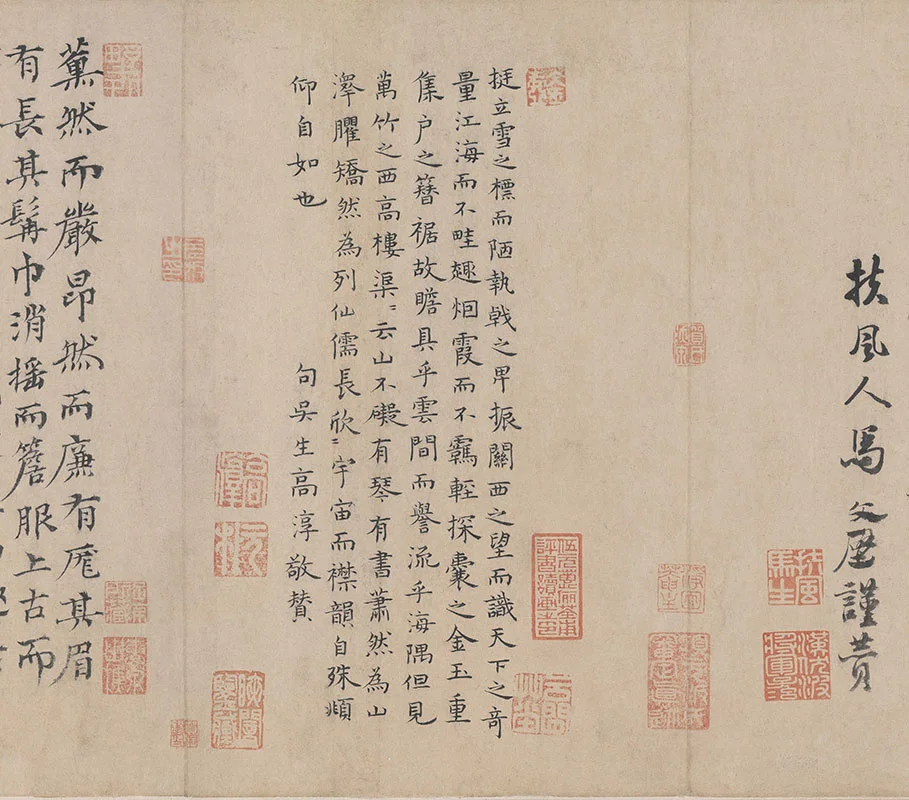 扶風人馬文璧謹贊
扶風馬生
挺立雪之標而陋執戟之卑振關西之望而識天下之奇
量江海而不畦趣烟霞而不羈輕探囊之金玉重
集户之簪裾故瞻具乎雲間而譽流乎海隅但見
萬竹之西高樓渠〻云山不礙有琴有書蕭然為山
澤臞矯然為列仙儒長欣〻宇宙而襟韻自殊頫
仰自如也
句吳生高淳敬贊
薰然而嚴昂然而廉有厖其眉
有長其髯巾消摇而簷服上古而